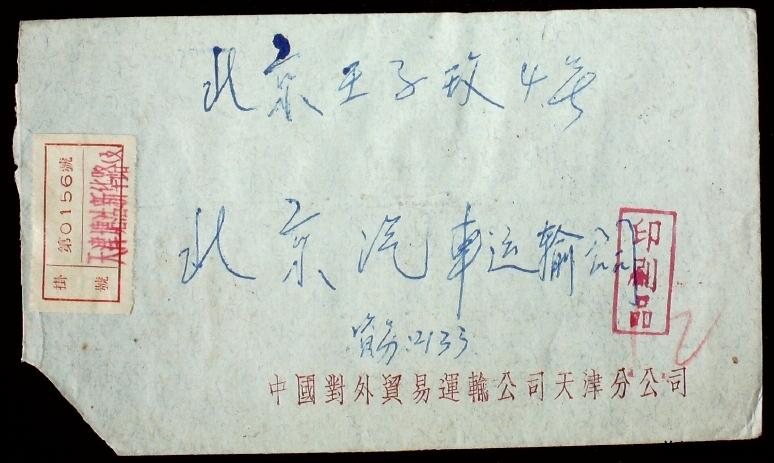 北京王子坟4号
北京汽车运输公司
贸易:2133
中國對外貿易運輸公司天津分公司
印刷品
掛號
第0156號
天津塘沽新华路